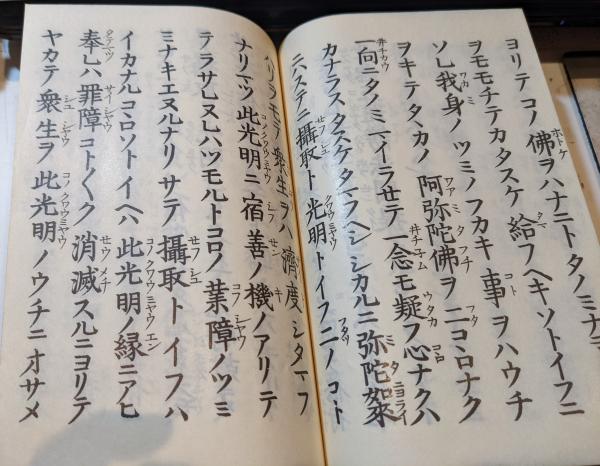 ヨリテコノ佛ヲハナニトタノミナニ
ヲモモチテカタスケ給フヘキソトイフニ
ソレ我身ノツミノフカキ事ヲハウチ
ヲキテタヽカノ阿弥陀佛ヲ二コヽロナク
一向ニタノミマイラセテ一念モ疑フ心ナクハ
カナラスタスケタマフヘシシカルニ弥陀如来
ニハステニ攝取ト光明トイフ二ノコト
ハリヲモテ衆生ヲハ濟度シタマフ
ナリマツ此光明ニ宿善ノ機ノアリテ
テラサレヌレハツモルトコロノ業障ノツミ
ミナキエヌルナリサテ攝取トイフハ
イカナルコヽロソトイヘハ此光明ノ縁ニアヒ
奉レハ罪障コト〳〵ク消滅スルニヨリテ
ヤカテ衆生ヲ此光明ノウチニオサメ